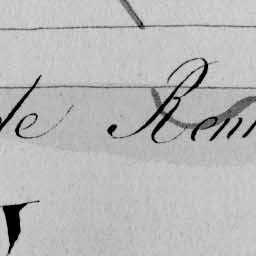 de Ren